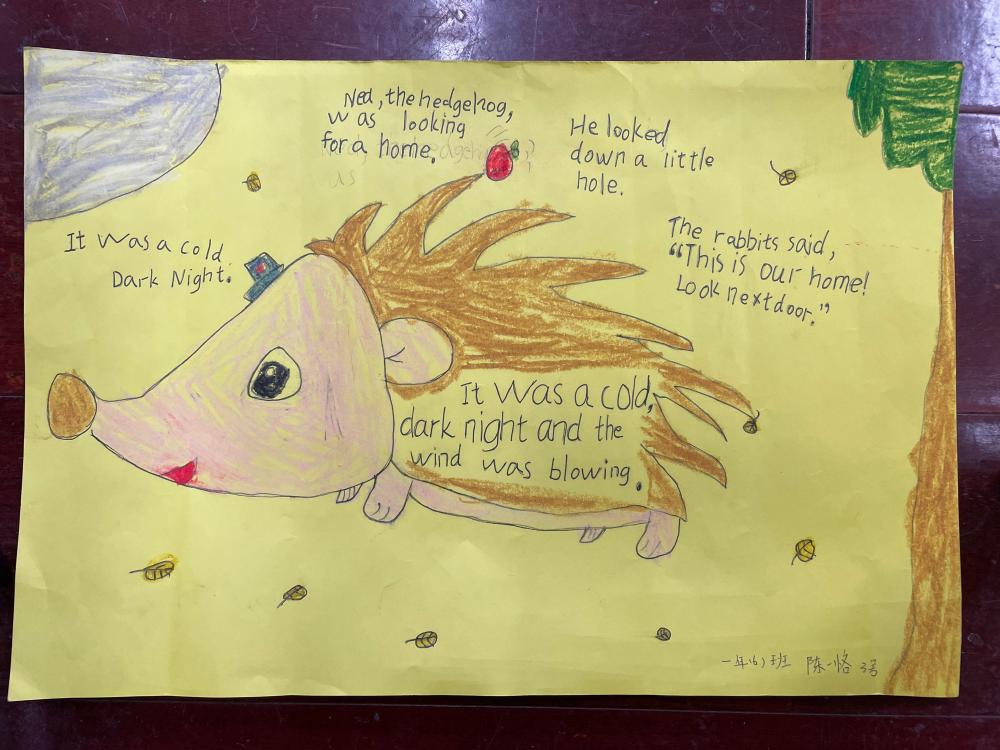 Ned, the hedgehog,
was looking
for a home.
He looked
down a little
hole.
It was a cold
Dark Night.
The rabbits said,
“This is our home!
Look next door.”
It was a cold,
dark night and the
wind was blowing.
一年(6)班 陈一恪 3号